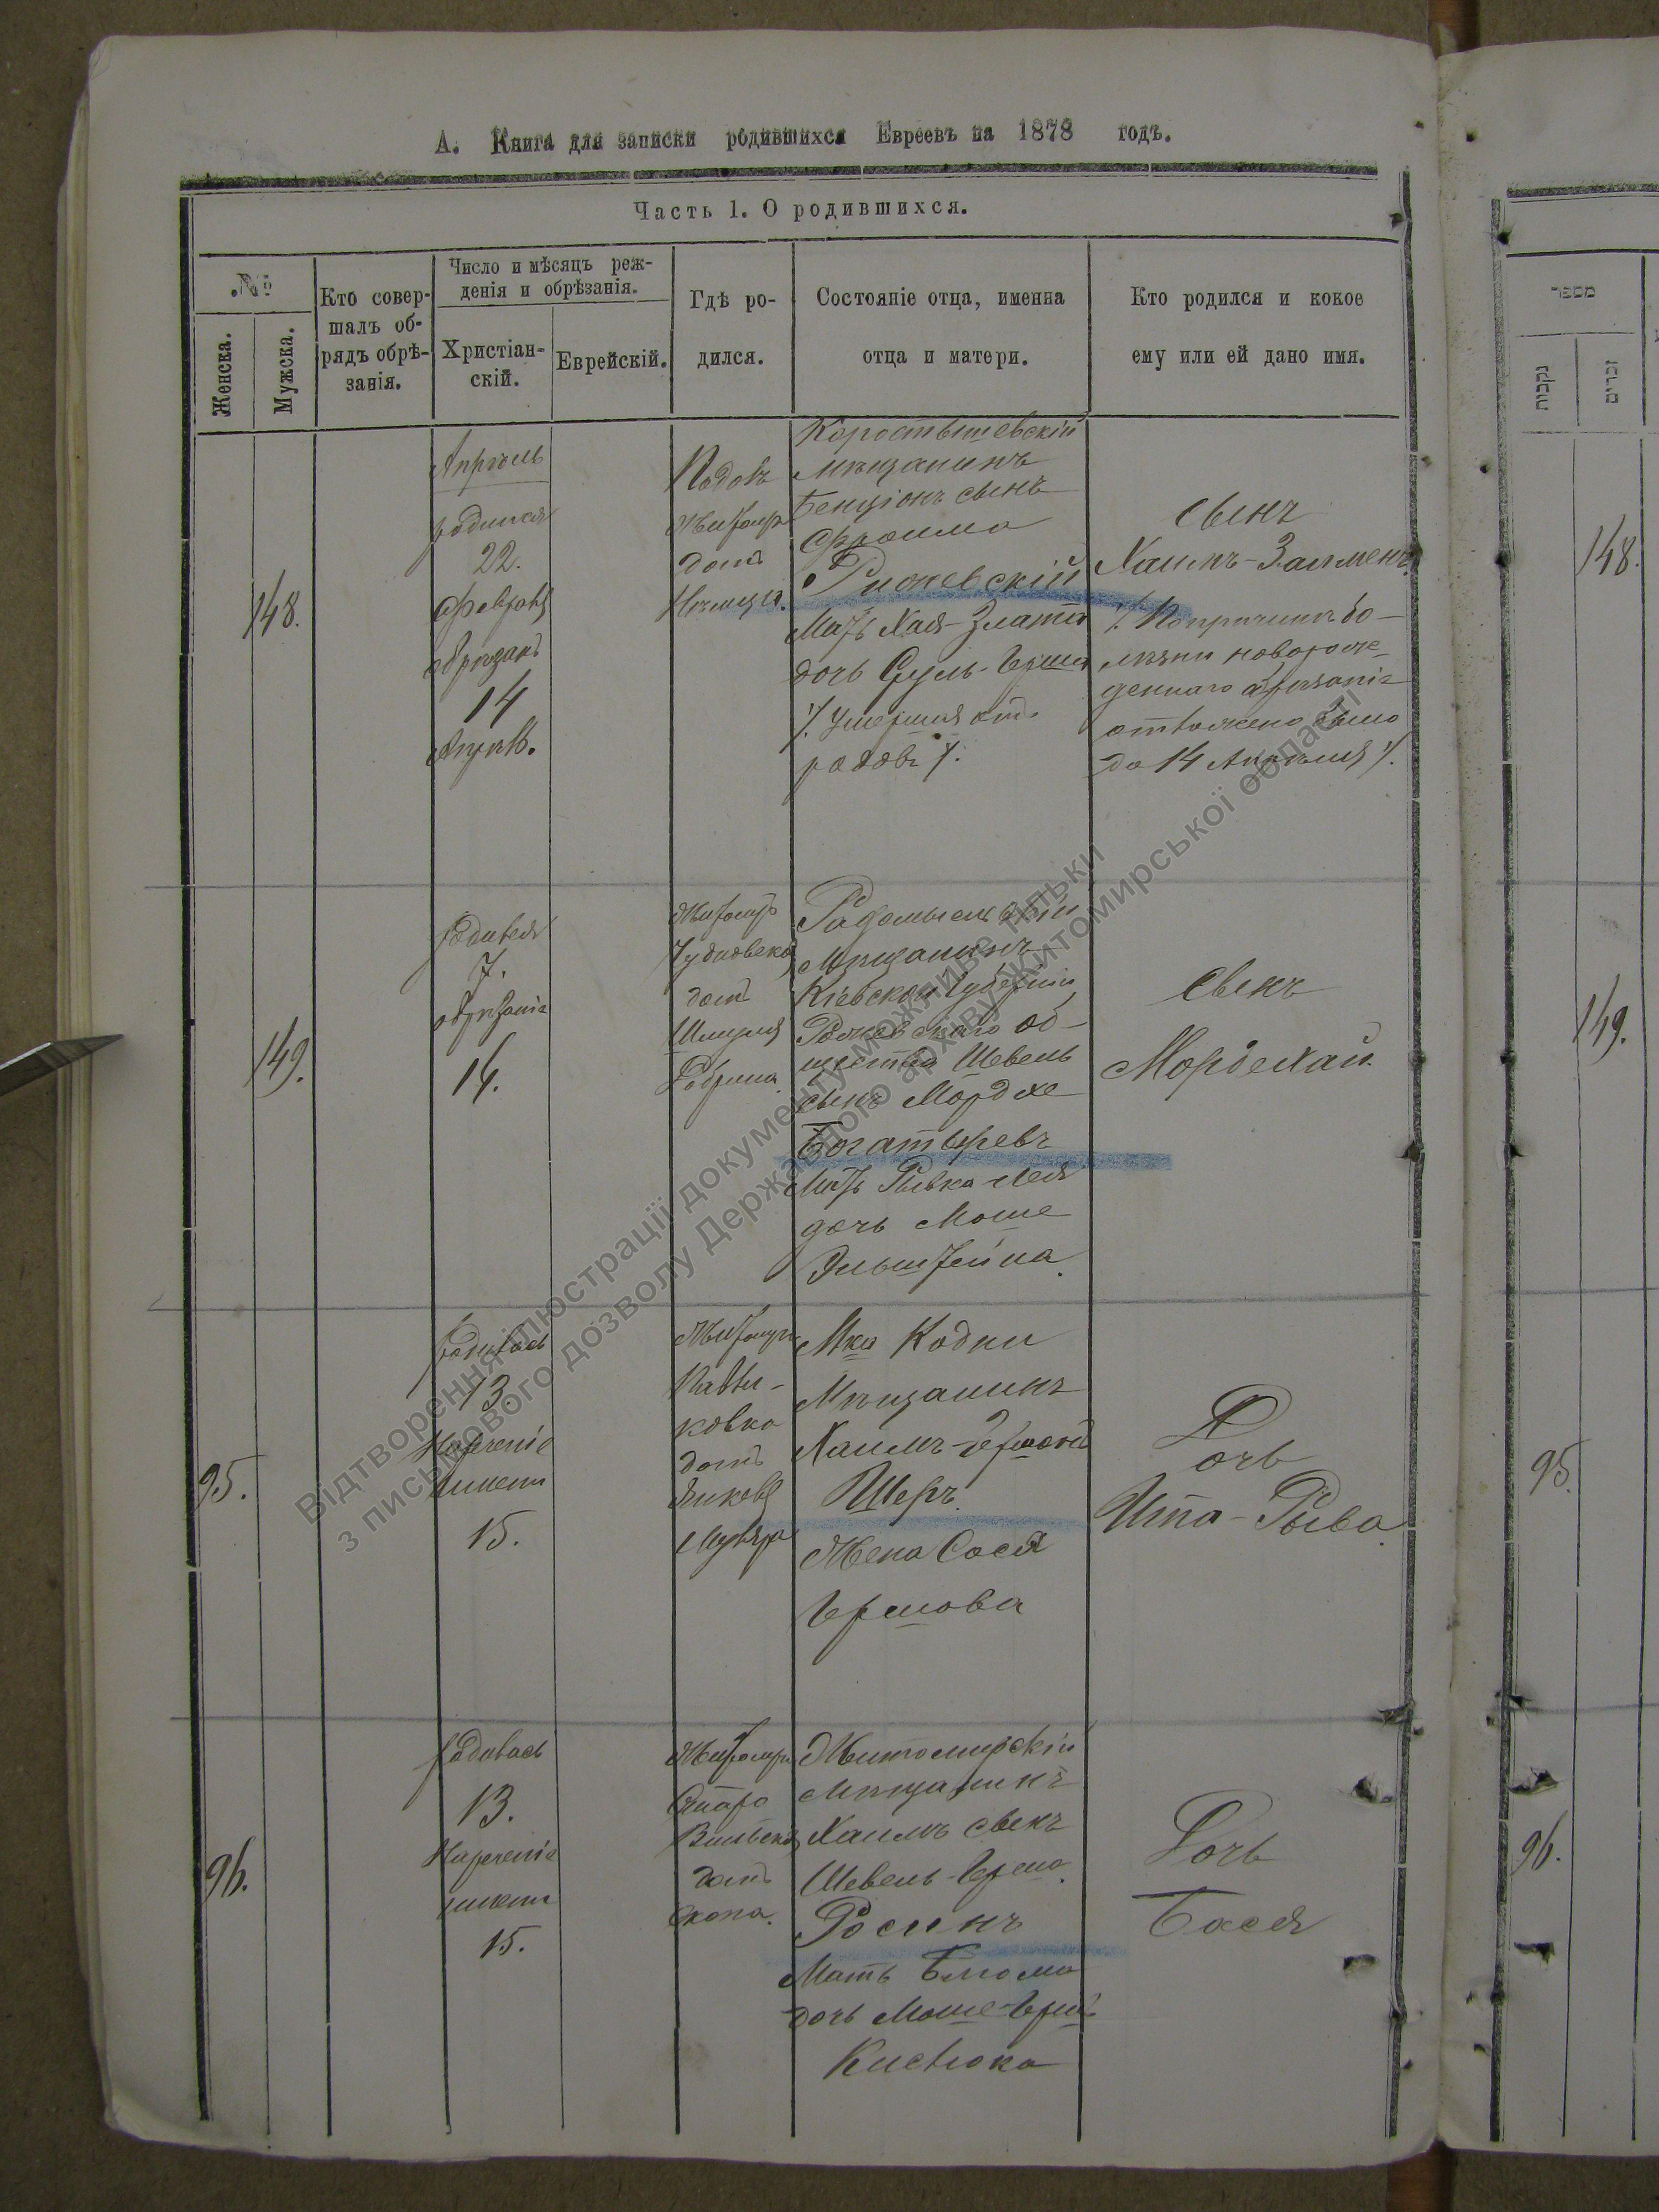 А. Книга для записки родившихся Евреевъ на 1878 годъ.
Часть 1. О родившихся.
№
Женска.
Мужска.
Кто совер-
шалъ об-
рядъ обрѣ-
занія.
Число и мѣсяцъ реж-
денія и обрѣзанія.
Христіан-
скій.
Еврейскій.
Гдѣ ро-
дился.
Состояніе отца, именна
отца и матери.
Кто родился и кокое
ему или ей дано имя.
148.
Апрѣль
родился
22.
Февраля
обрѣзанъ
14
Апрѣл.
Житомръ
домъ
Коростышевскій
мѣщанинъ
Бенціонъ сынъ
Фроима
Рижевскій
Мать Хая-Злата
дочь Сруль-Герша
/. умершая отъ
родовъ /.
сынъ
Хаимъ-Залменъ.
/. По причинѣ бо-
лѣзни новорож-
деннаго обрѣзаніе
отложено было
до 14 Апрѣля /.
149.
родился
7.
обрѣзаніе
14.
Житомръ
Чудновская
домъ
Шмуля
Радомысльскій
Мѣщанинъ
Кіевской Губерніи
общества Шевель
сынъ Мордхе
Богатыревъ
Мать Рывка-Лея
дочь Моше
Эльштейна.
сынъ
Мордехай.
95.
родилась
13.
Нареченіе
имени
15.
Житомръ
домъ
Мка Кодни
Мѣщанинъ
Хаимъ-Гершонъ
Шеръ.
Жена Сося
Гершова
Дочь
Ита-Рыва.
96.
родилась
13.
Нареченіе
имени
15.
Житомръ
Старо
Вильская
домъ
Житомирскій
мѣщанинъ
Хаимъ сынъ
Шевель-Герша.
Росинъ
Мать Блюма
дочь Моше-Герша
Кислюка
Дочь
Бася
מספר
נקבות
זכרים
148.
149.
95.
96.
Відтворення ілюстрації документу можливе тільки
з письмового дозволу Державного архіву Житомирської області